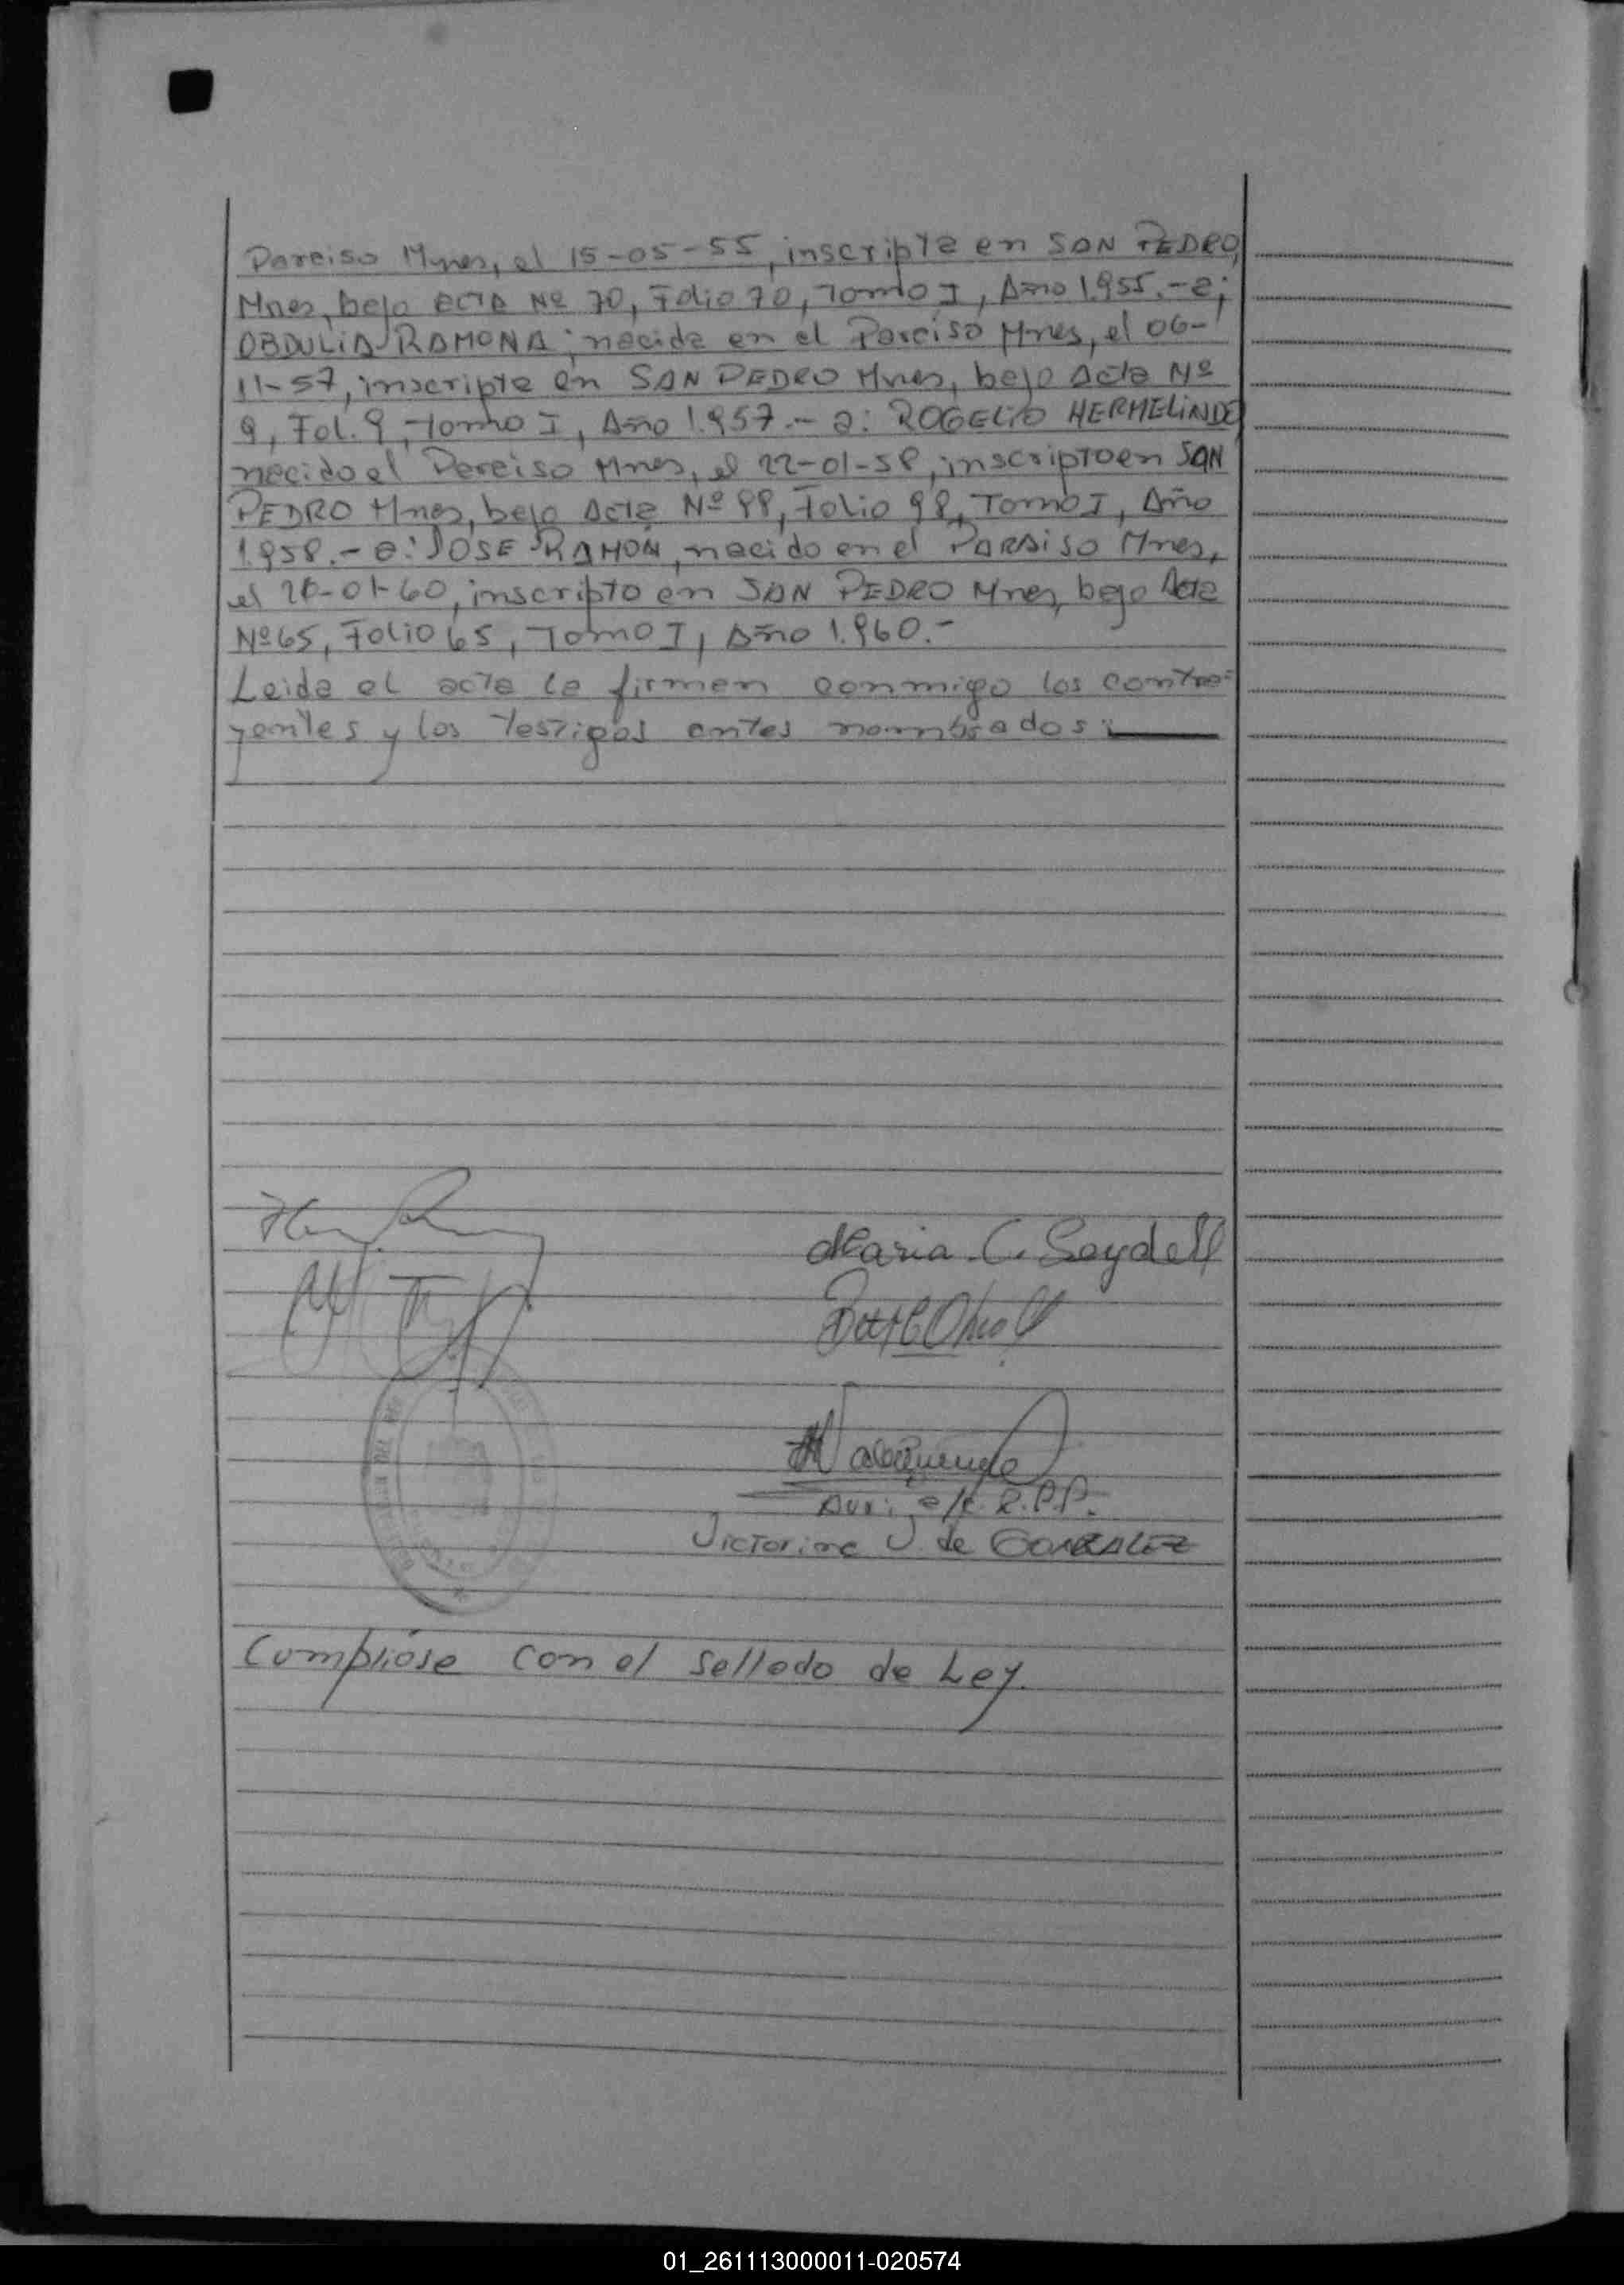 Paraiso Mnes, el 15-05-55, inscripta en SAN PEDRO,
Mnes, bajo ACTA Nº 70, Folio 70, Tomo I, Año 1.955.- a;
OBDULIA RAMONA; nacida en el Paraiso Mnes, el 06-
11-57, inscripta en SAN PEDRO Mnes, bajo Acta Nº
9, Fol. 9, Tomo I, Año 1.957.- a: ROGELIO HERMELINDE,
nacido el Paraiso Mnes, el 22-01-58, inscripto en SAN
PEDRO Mnes, bajo Acta Nº 98, Folio 98, Tomo I, Año
1.958.- a: JOSE RAMON, nacido en el PARAISO Mnes,
el 20-01-60, inscripto en SAN PEDRO Mnes, bajo Acta
Nº 65, Folio 65, Tomo I, Año 1.960.-
Leida el acta la firman conmigo los contra=
yentes y los testigos antes nombrados:
Maria C. Seydell
Auxi, a/c. R.P.P.
Victorina V. de GONZALEZ
Cumplióse con el sellado de Ley.
01_261113000011-020574